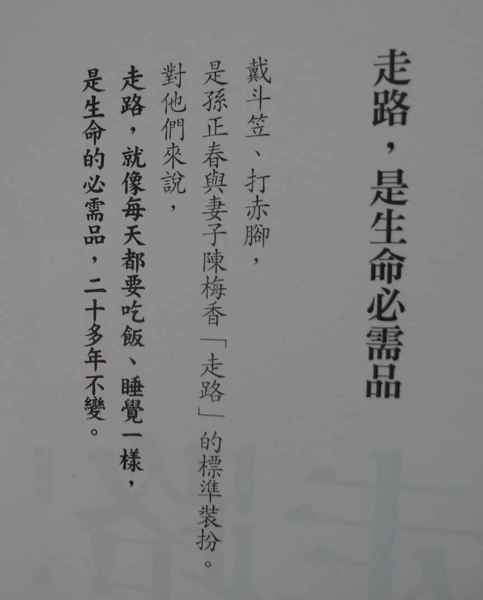 走路，是生命必需品
戴斗笠、打赤腳，
是孫正春與妻子陳梅香「走路」的標準裝扮。
對他們來說，
走路，就像每天都要吃飯、睡覺一樣，
是生命的必需品，二十多年不變。
走路